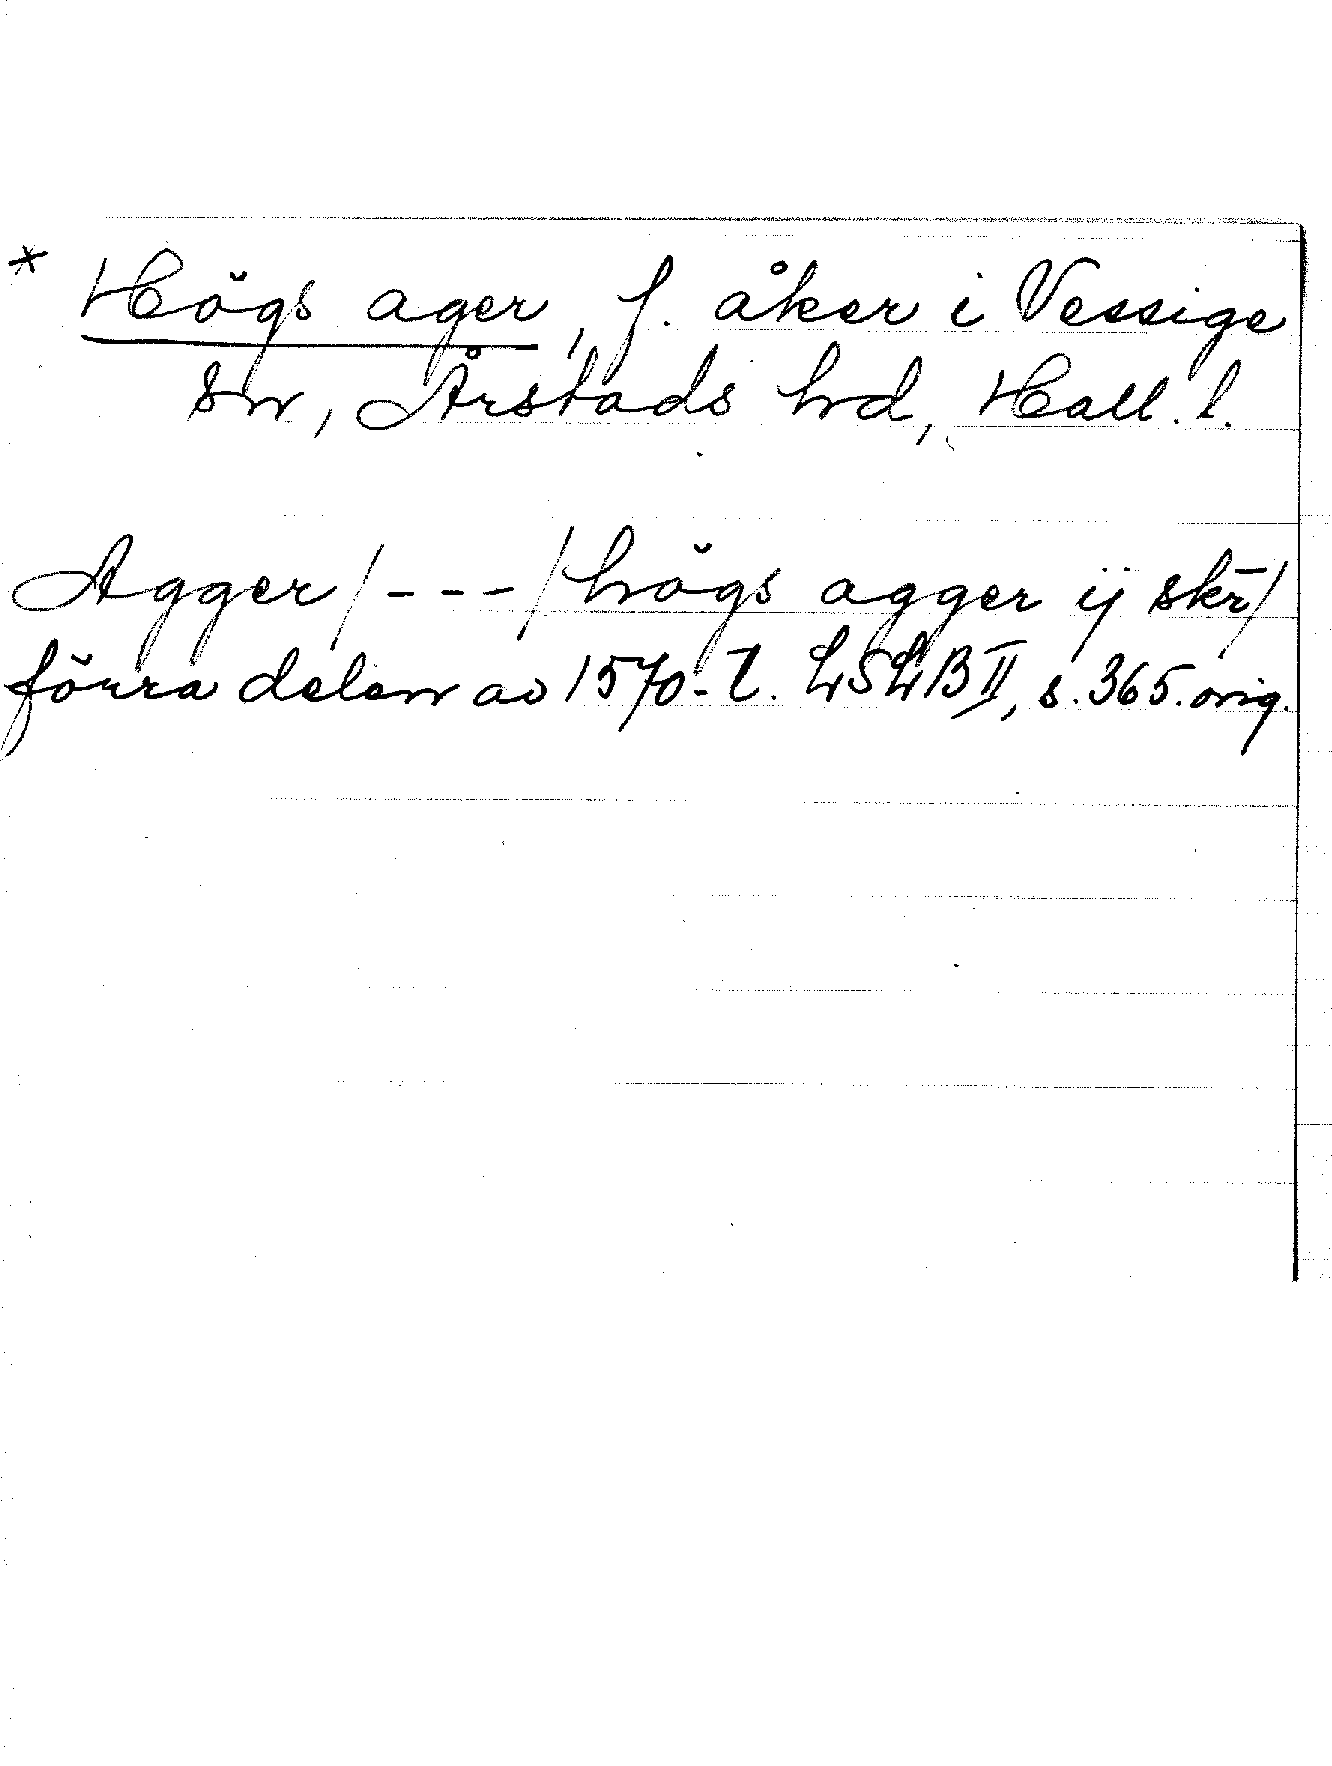 * Högs ager, f. åker i Vessige
sn, Årstads hd, Hall. l.
Agger/---/högs agger ij skr̄/
förra delen av 1570-t. LSLB II, s. 365. orig.